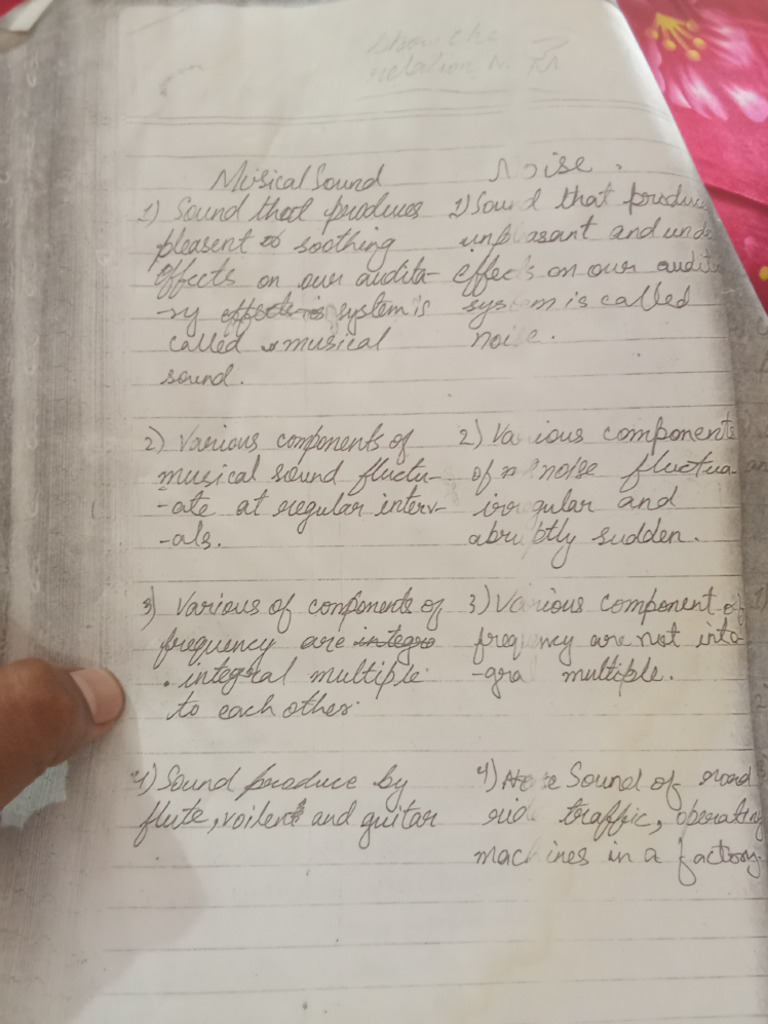 Show the
relation
Musical Sound
1) Sound that produces
pleasent or soothing
effects on our audita-
-ry effects is system is
called a musical
sound.
2) Various components of
musical sound fluctu-
-ate at regular interv-
-als.
3) Various of components of
frequency are integra
. integral multiple
to each other.
4) Sound produce by
flute, voilent and guitar
Noise.
1) Sound that produc
unpleasant and unde
effects on our audit
system is called
noise.
2) Various components
of n noise fluctua-
irregular and
abruptly sudden.
3) Various component of
frequency are not inte-
-gra multiple.
4) Sound of road
side traffic, operating
machines in a factory.